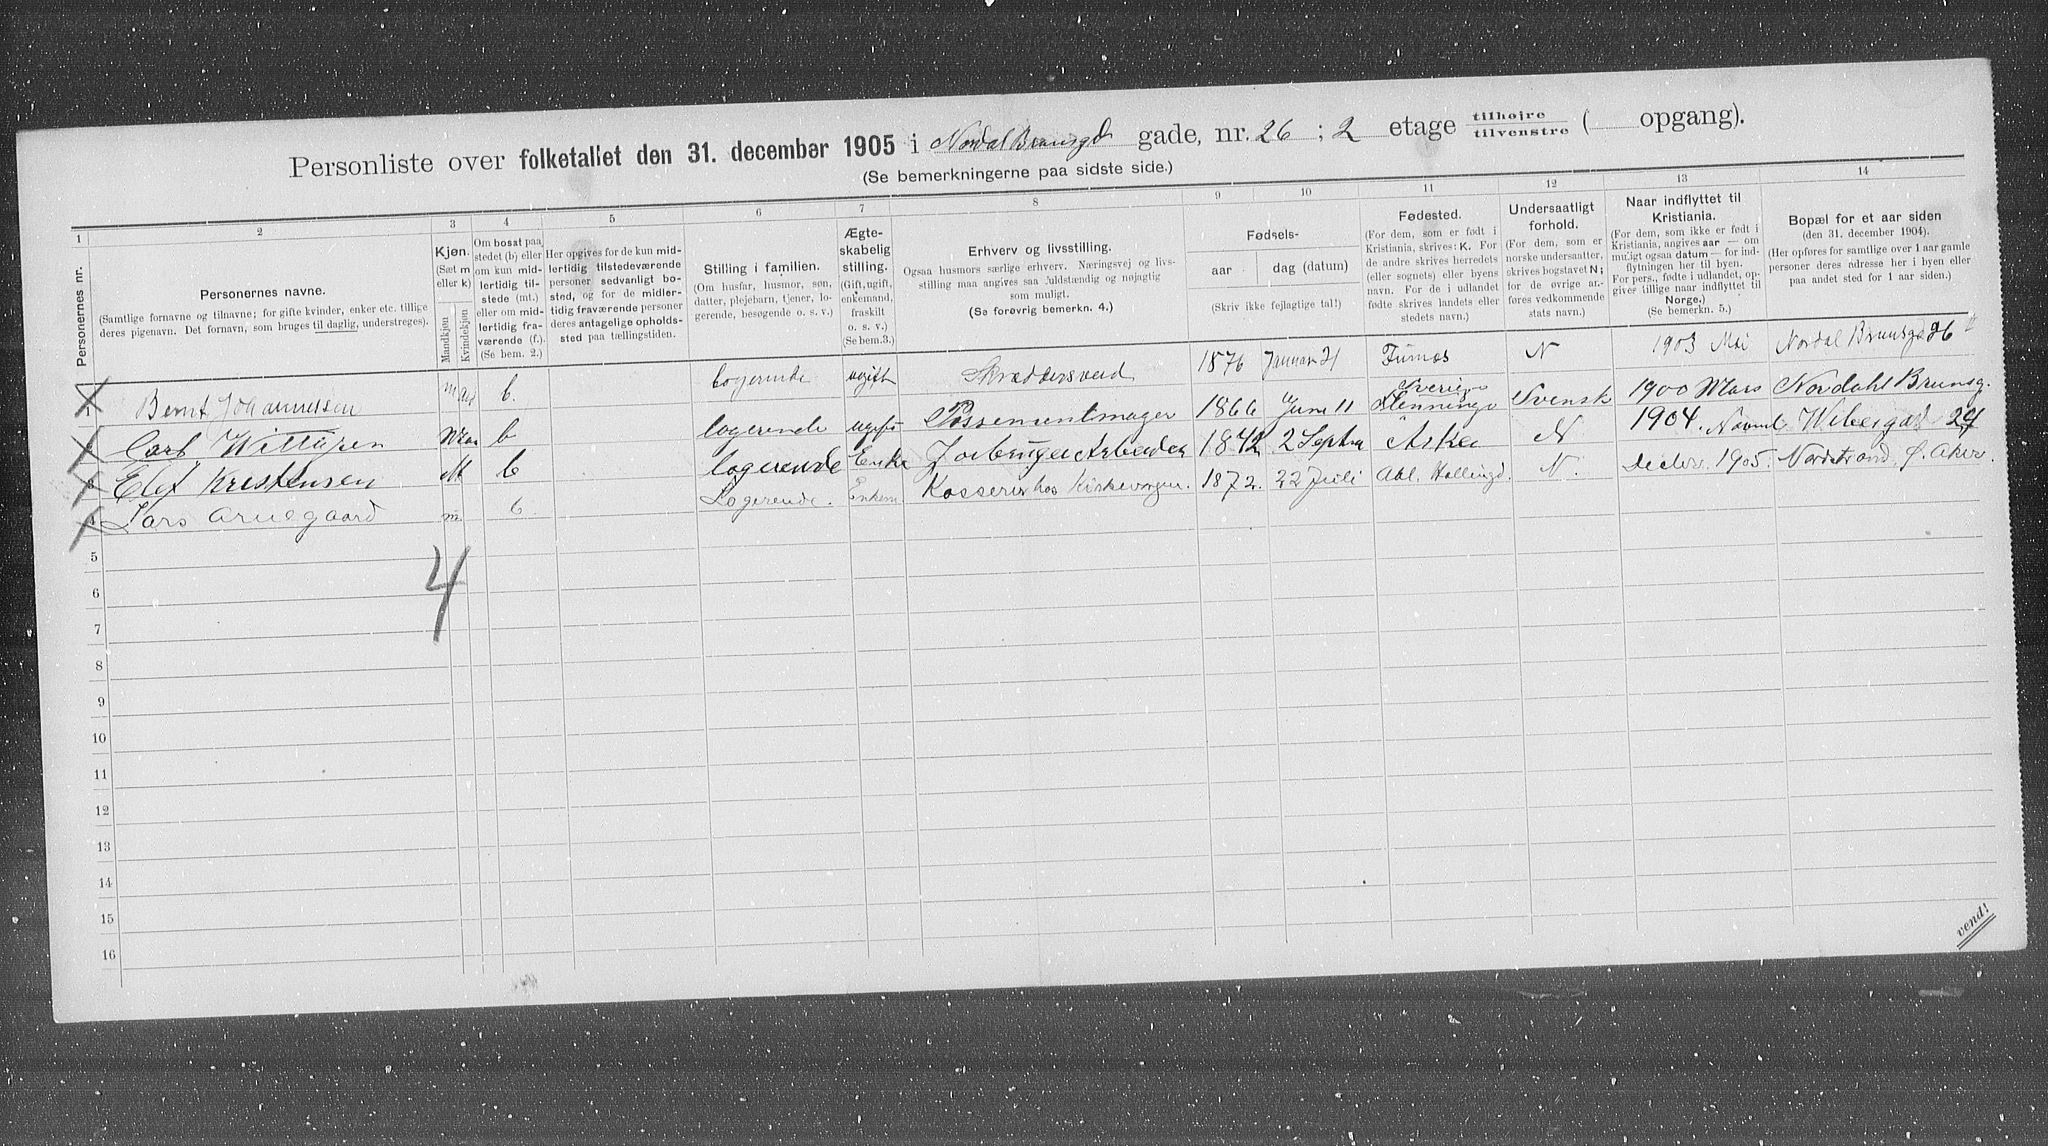 Personliste over folketallet den 31. december 1905 i Nordal Brunsgd gade, nr. 26 ; 2 etage tilhøjre tilvenstre ( opgang).
(Se bemerkningerne paa sidste side.)
1 2 3 4 5 6 7 8 9 10 11 12 13 14
Personernes nr.
Personernes navne.
(Samtlige fornavne og tilnavne; for gifte kvinder, enker etc. tillige
deres pigenavn. Det fornavn, som bruges til daglig, understreges).
Kjøn.
(Sæt m
eller k)
Mandkjøn
Kvindekjøn
Om bosat paa
stedet (b) eller
om kun mid-
lertidig til-
stede (mt.)
eller om mid-
lertidig fra-
værende (f.).
(Se bem. 2.)
Her opgives for de kun mid-
lertidig tilstedeværende
personer sedvanligt bo-
sted, og for de midler-
tidig fraværende personer
deres antagelige opholds-
sted paa tællingstiden.
Stilling i familien.
(Om husfar, husmor, søn,
datter, plejebarn, tjener, lo-
gerende, besøgende o. s. v.)
Ægte-
skabelig
stilling.
(Gift, ugift,
enkemand,
fraskilt
o. s. v.)
(Se bem. 3.)
Erhverv og livsstilling.
Ogsaa husmors særlige erhverv. Næringsvej og livs-
stilling maa angives saa fuldstændig og nøjagtig
som muligt.
(Se forøvrig bemerkn. 4.)
Fødsels-
aar dag (datum)
(Skriv ikke fejlagtige tal!)
Fødested.
(For dem, som er født i
Kristiania, skrives: K. For
de andre skrives herredets
(eller sognets) eller byens
navn. For de i udlandet
fødte skrives landets eller
stedets navn.)
Undersaatligt
forhold.
(For dem, som er
norske undersaatter,
skrives bogstavet N;
for de øvrige an-
føres vedkommende
stats navn.)
Naar indflyttet til
Kristiania.
(For dem, som ikke er født i
Kristiania, angives aar — om
muligt ogsaa datum — for ind-
flytningen her til byen.
For pers., fødte i udlandet, op-
giver tillige naar indflyttet til
Norge.)
(Se bemerkn. 5.)
Bopæl for et aar siden
(den 31. december 1904).
(Her opføres for samtlige over 1 aar gamle
personer deres adresse her i byen eller
paa andet sted for 1 aar siden.)
1 Bernt Johannessen b. logerende ugift Skræddersvend 1876 Januar 21 Furnes N 1903 Mai Nordal Brunsgd 26
2 Carl b logerende ugift Possementmager 1866 Juni 11 Sverige Svensk 1900 Mars Nordahl Brunsg.
3 Elef Kristensen M b logerende Enke Arbeider 1842 2 Septbr Asker N 1904. Novmb. Wibesgade
4 Lars Arnegaard m. b Logerende. Enkem Kasserer hos Kirkevergen. 1872. 22 Juli Aal. Hallingd. N. Decbr. 1905. Nordstrand, Ø. Aker.
4
5
6
7
8
9
10
11
12
13
14
15
16
vend!